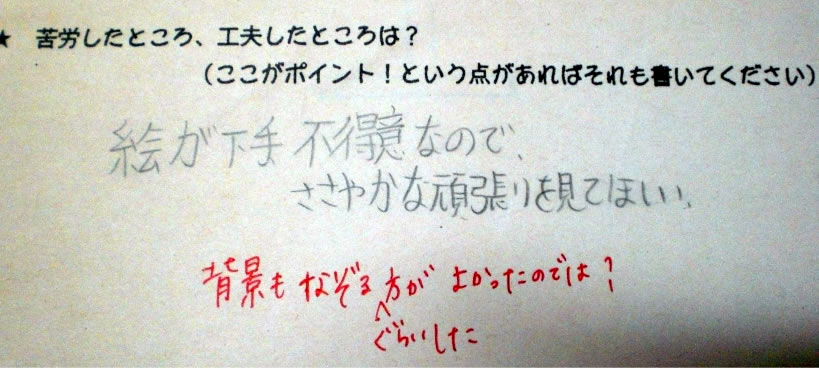 ★ 苦労したところ、工夫したところは？
（ここがポイント！という点があればそれも書いてください）
絵が下手 不得意なので、
ささやかな頑張りを見てほしい。
背景もなぞる方が よかったのでは？
ぐらいした